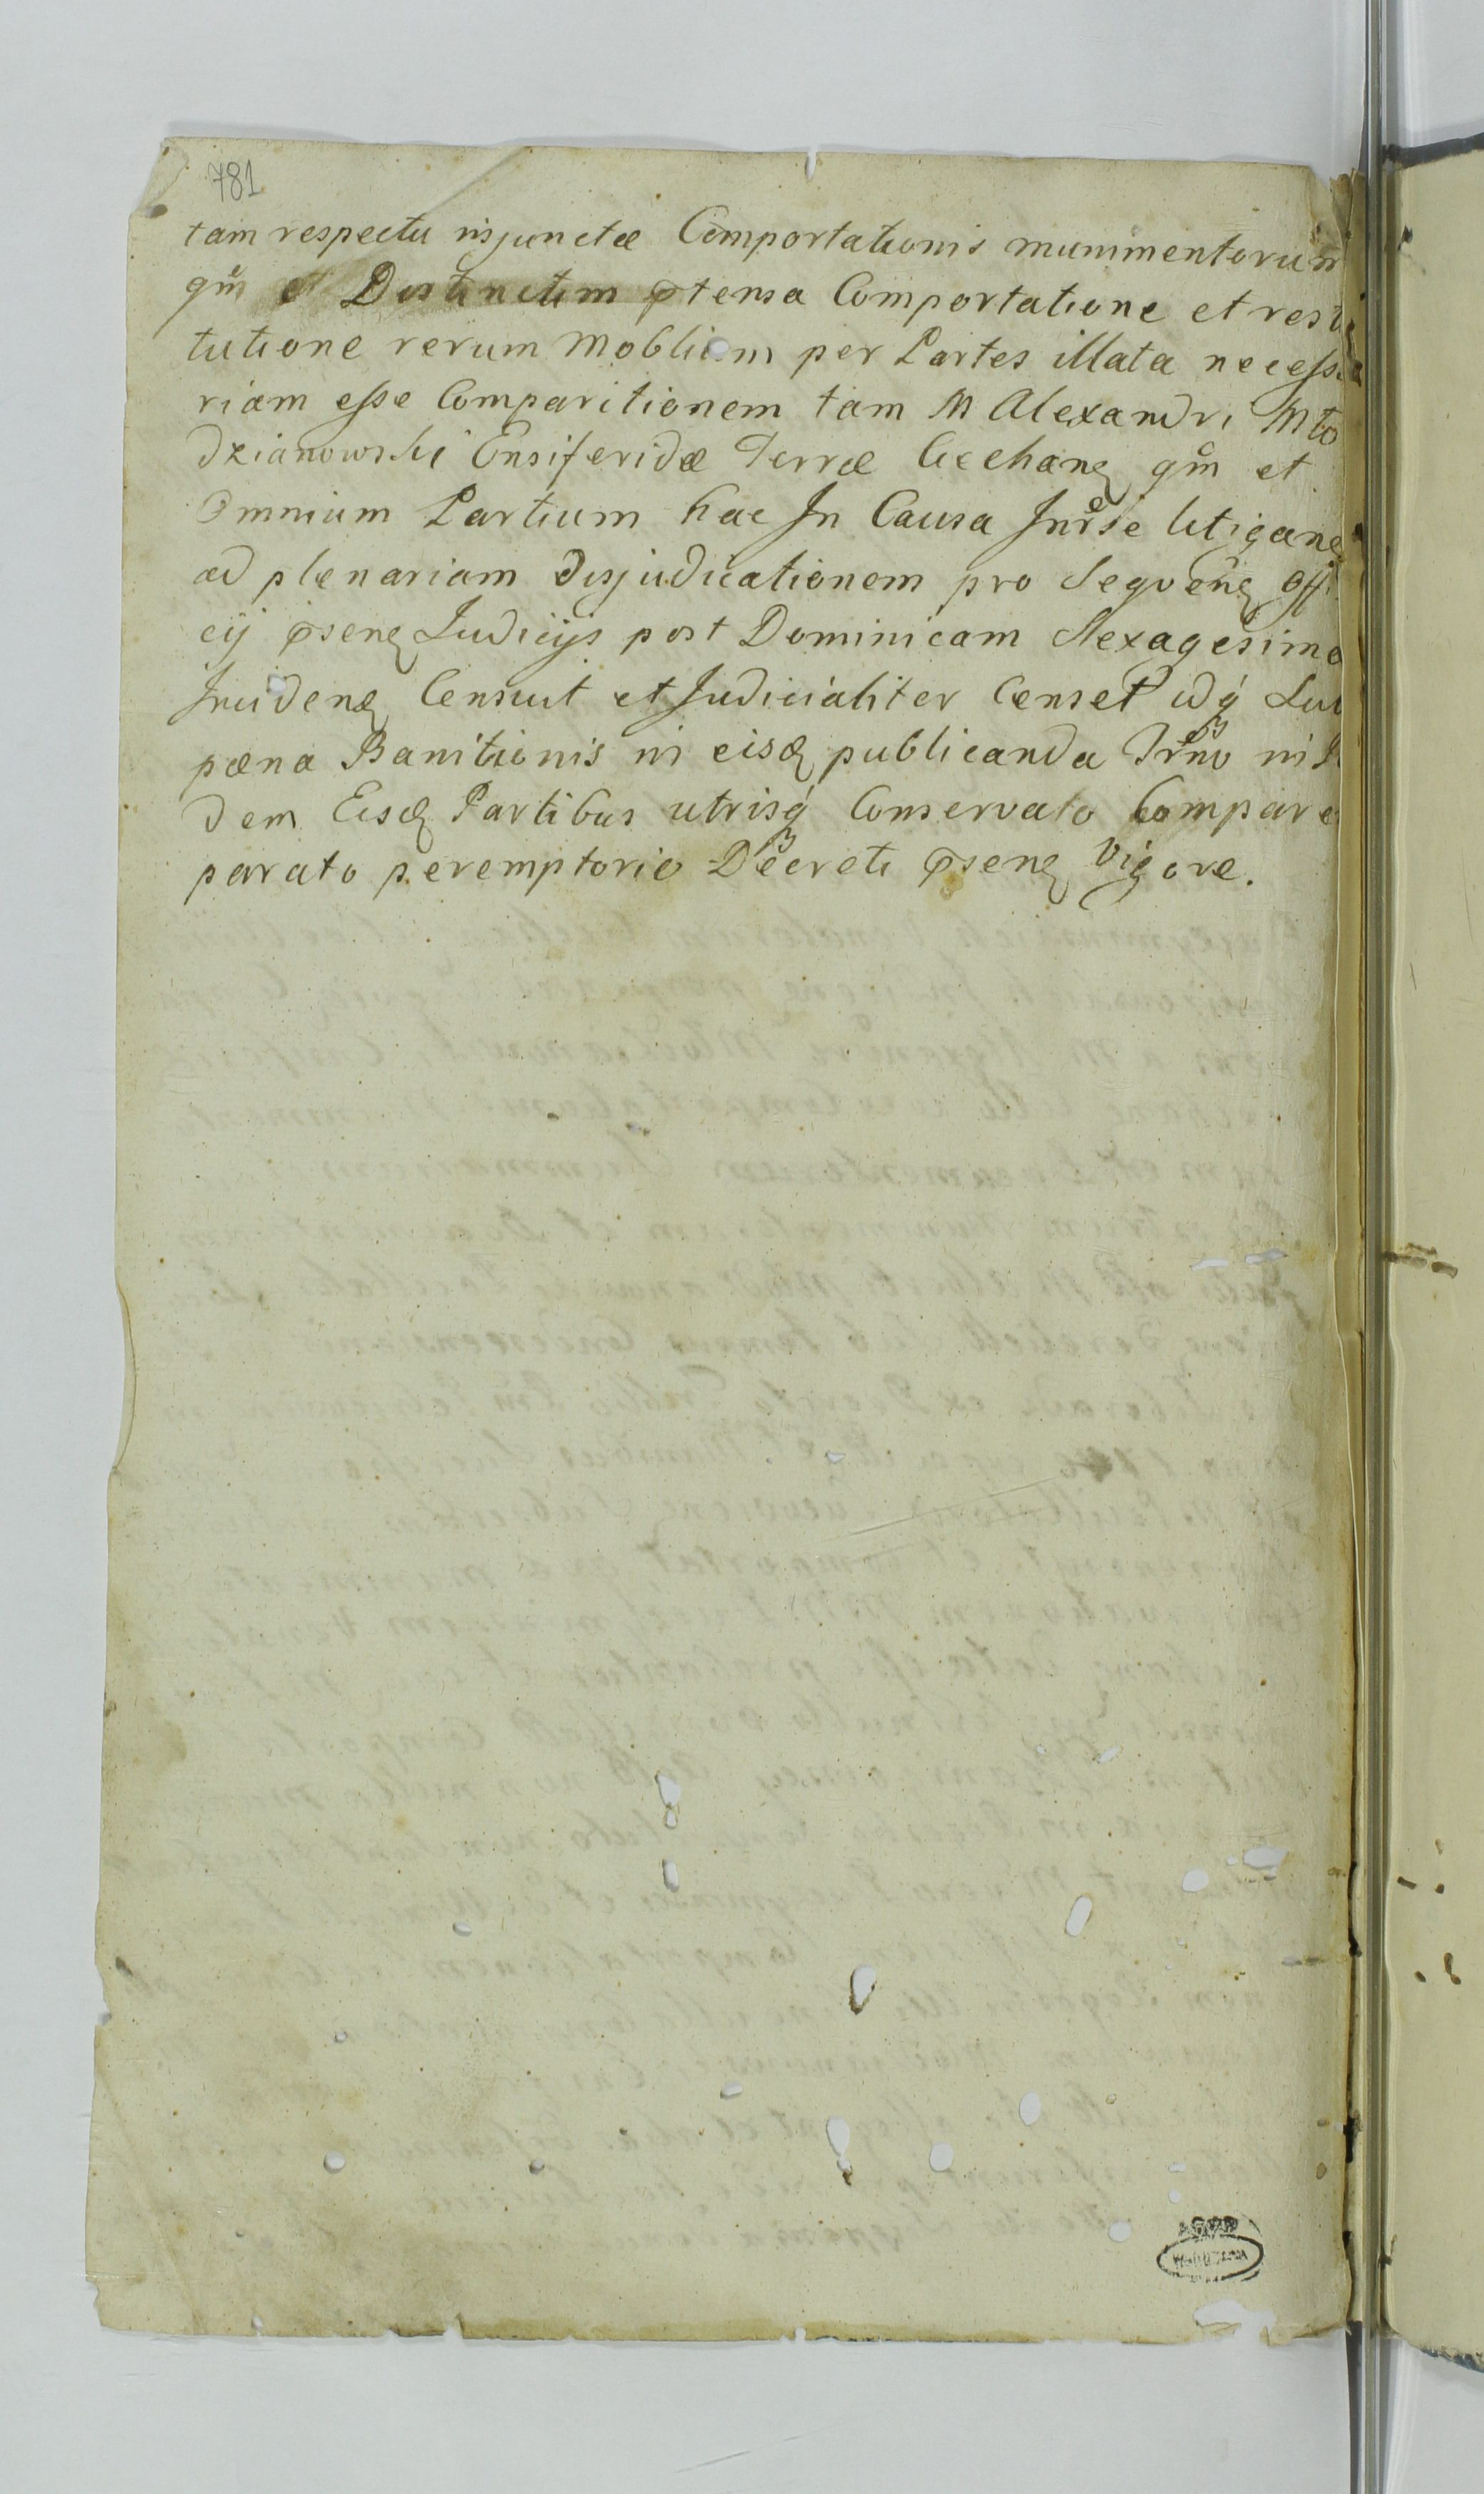 781
tam respectu injunctæ Comportationis munimentorum
qm̃ et Distinctim ptensa Comportatione et resti
tutione rerum Moblium per Partes illata necessa
riam esse Comparitionem tam M Alexandri Mło
dzianowski Ensiferidæ Terræ Ciechanę qm̃ et
Omnium Partium hac In Causa Inr̃se litiganę
ad plenariam disjudicationem pro Sequenę Offi
cij psenę Judicijs post Dominicam Sexagesima
Incidenę Censuit et Judicialiter Censet idq́
pæna Banitionis in eisdę publicanda Tr̃no in
dem Eisdę Partibus utrisq́ Conservato Compare
parato peremptorie Decreti psenę Vigore.
AGAD
WARSZAWA